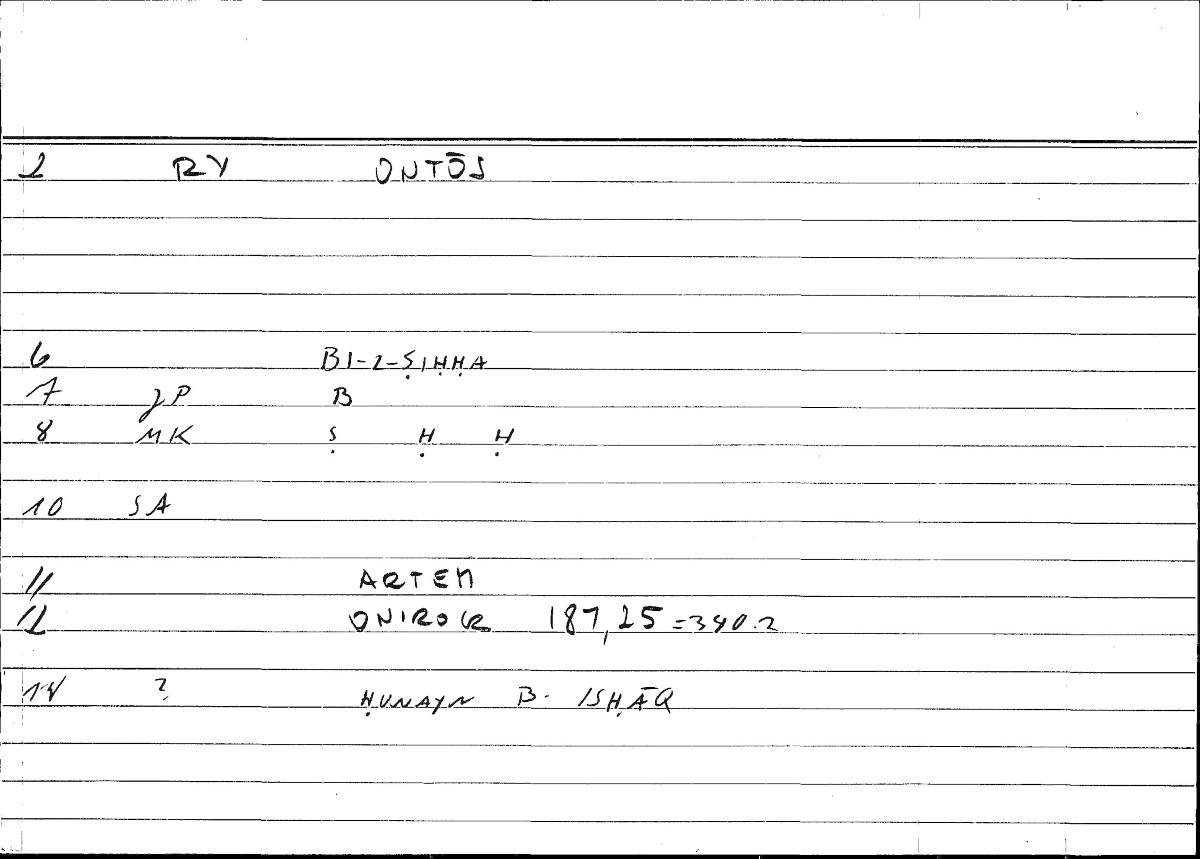 2 RY ONTŌS
6 BI-2-ṢIḤḤA
7 JP B
8 MK Ṣ Ḥ Ḥ
10 SA
11 ARTEM
12 ONIROCR 187,25 = 340.2
14 ? ḤUNAYN B. ISḤĀQ